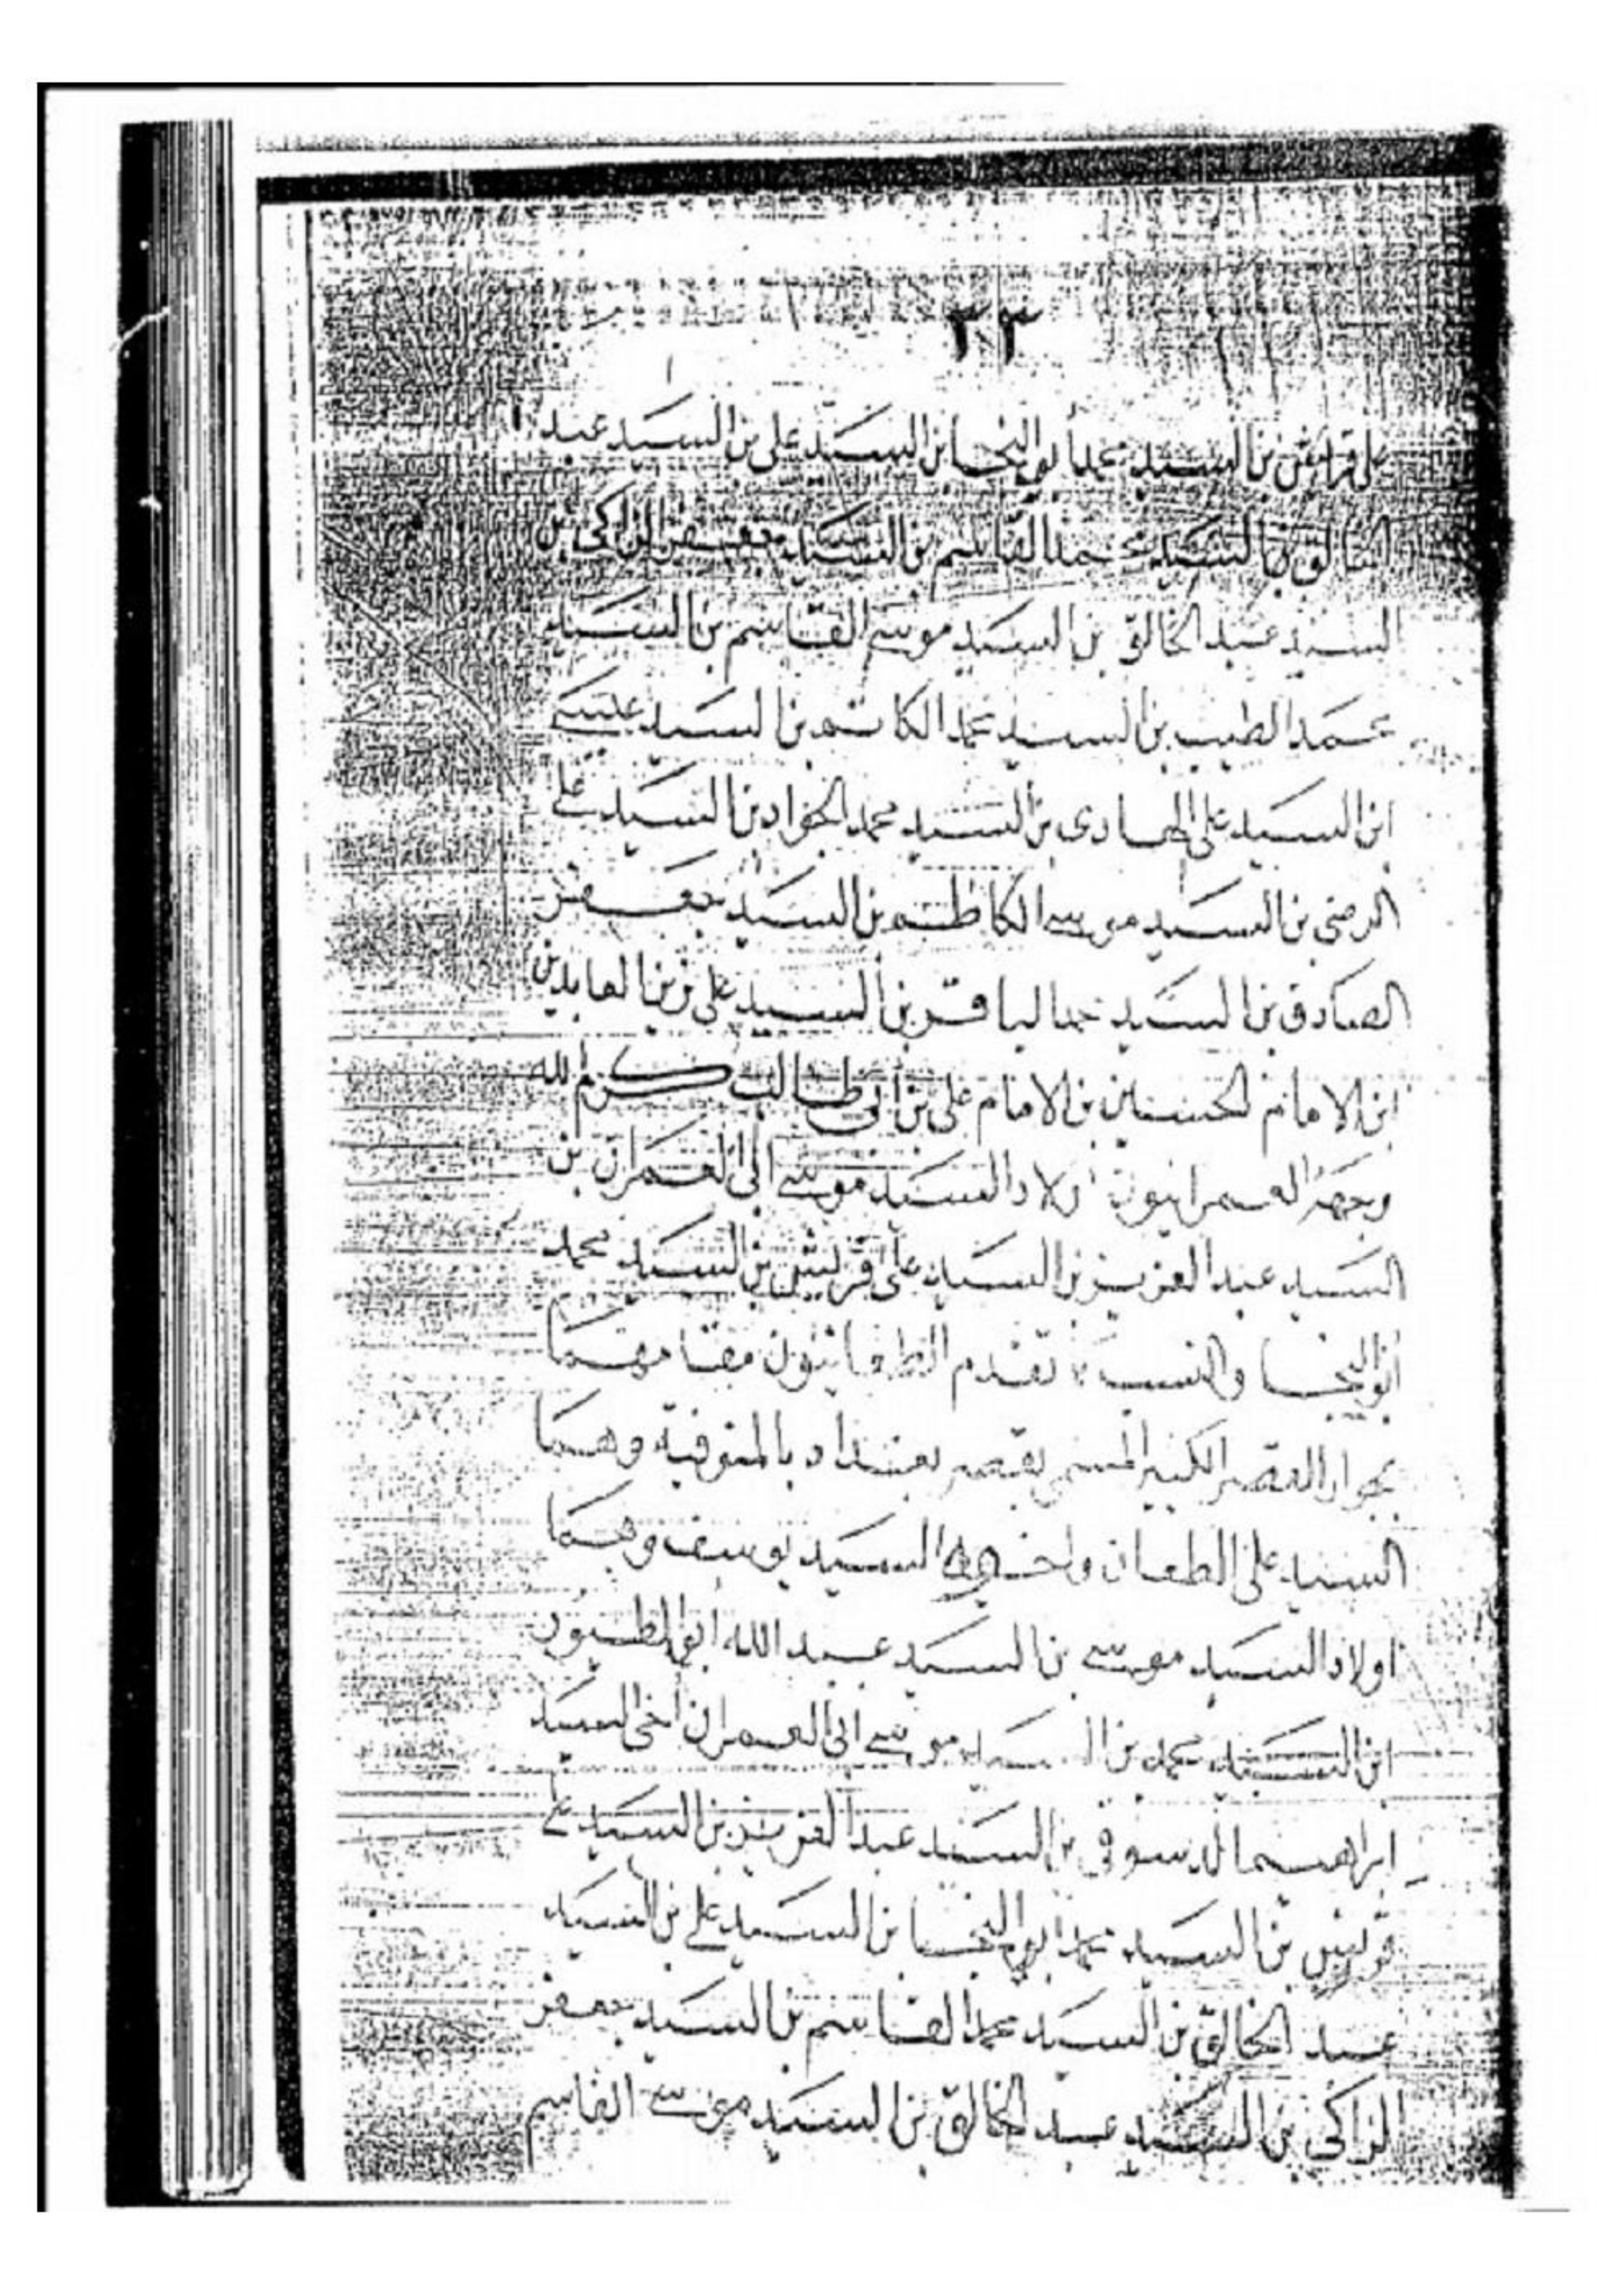 ٢٣
على قريش بن السيد محمد أبو النجا بن السيد على بن السيد عبد
الخالق بن السيد محمد القاسم بن السيد جعفر الزاكى بن
السيد عبد الخالق بن السيد موسى القاسم بن السيد
محمد الطيب بن السيد محمد الكاتم بن السيد عيسى
ابن السيد على الهادى بن السيد محمد الجواد بن السيد على
الرضى بن السيد موسى الكاظم بن السيد جعفر
الصادق بن السيد محمد الباقر بن السيد على زين العابدين
ابن الامام الحسين بن الامام على بن أبى طالب كرم الله
وجهه العمرانيون اولاد السيد موسى أبى العمران بن
السيد عبد العزيز بن السيد على قريش بن السيد محمد
أبو النجا والنسب تقدم الطعانيون مقامهما
بجوار القصر الكبير المسمى بقصر بغداد بالمنوفية وهما
السيد على الطعان واخوه السيد يوسف وهما
اولاد السيد موسى بن السيد عبد الله أبو الطيور
ابن السيد محمد بن السيد موسى ابى العمران أخى السيد
ابراهيم الدسوقى بن السيد عبد العزيز بن السيد على
قريش بن السيد محمد ابو النجا بن السيد على بن السيد
عبد الخالق بن السيد محمد القاسم بن السيد جعفر
الزاكى بن السيد عبد الخالق بن السيد موسى القاسم